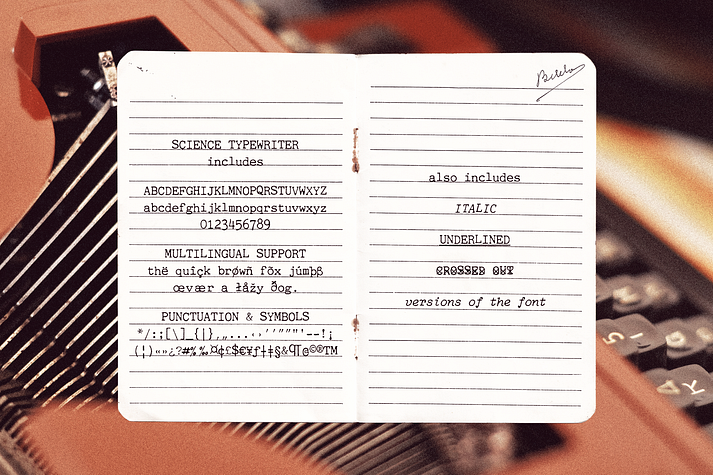 SCIENCE TYPEWRITER
includes
ABCDEFGHIJKLMNOPQRSTUVWXYZ
abcdefghijklmnopqrstuvwxyz
0123456789
MULTILINGUAL SUPPORT
thë quïçk brøwñ fõx júmþß
œvær a łåžy ðog.
PUNCTUATION & SYMBOLS
*/:;[\]_{|}‚„...‹›‘’“”"'-–!¡
(¦)«»¿?#%‰¤¢£$€¥ƒ†‡§&¶@©®™
also includes
ITALIC
UNDERLINED
CROSSED OUT
versions of the font